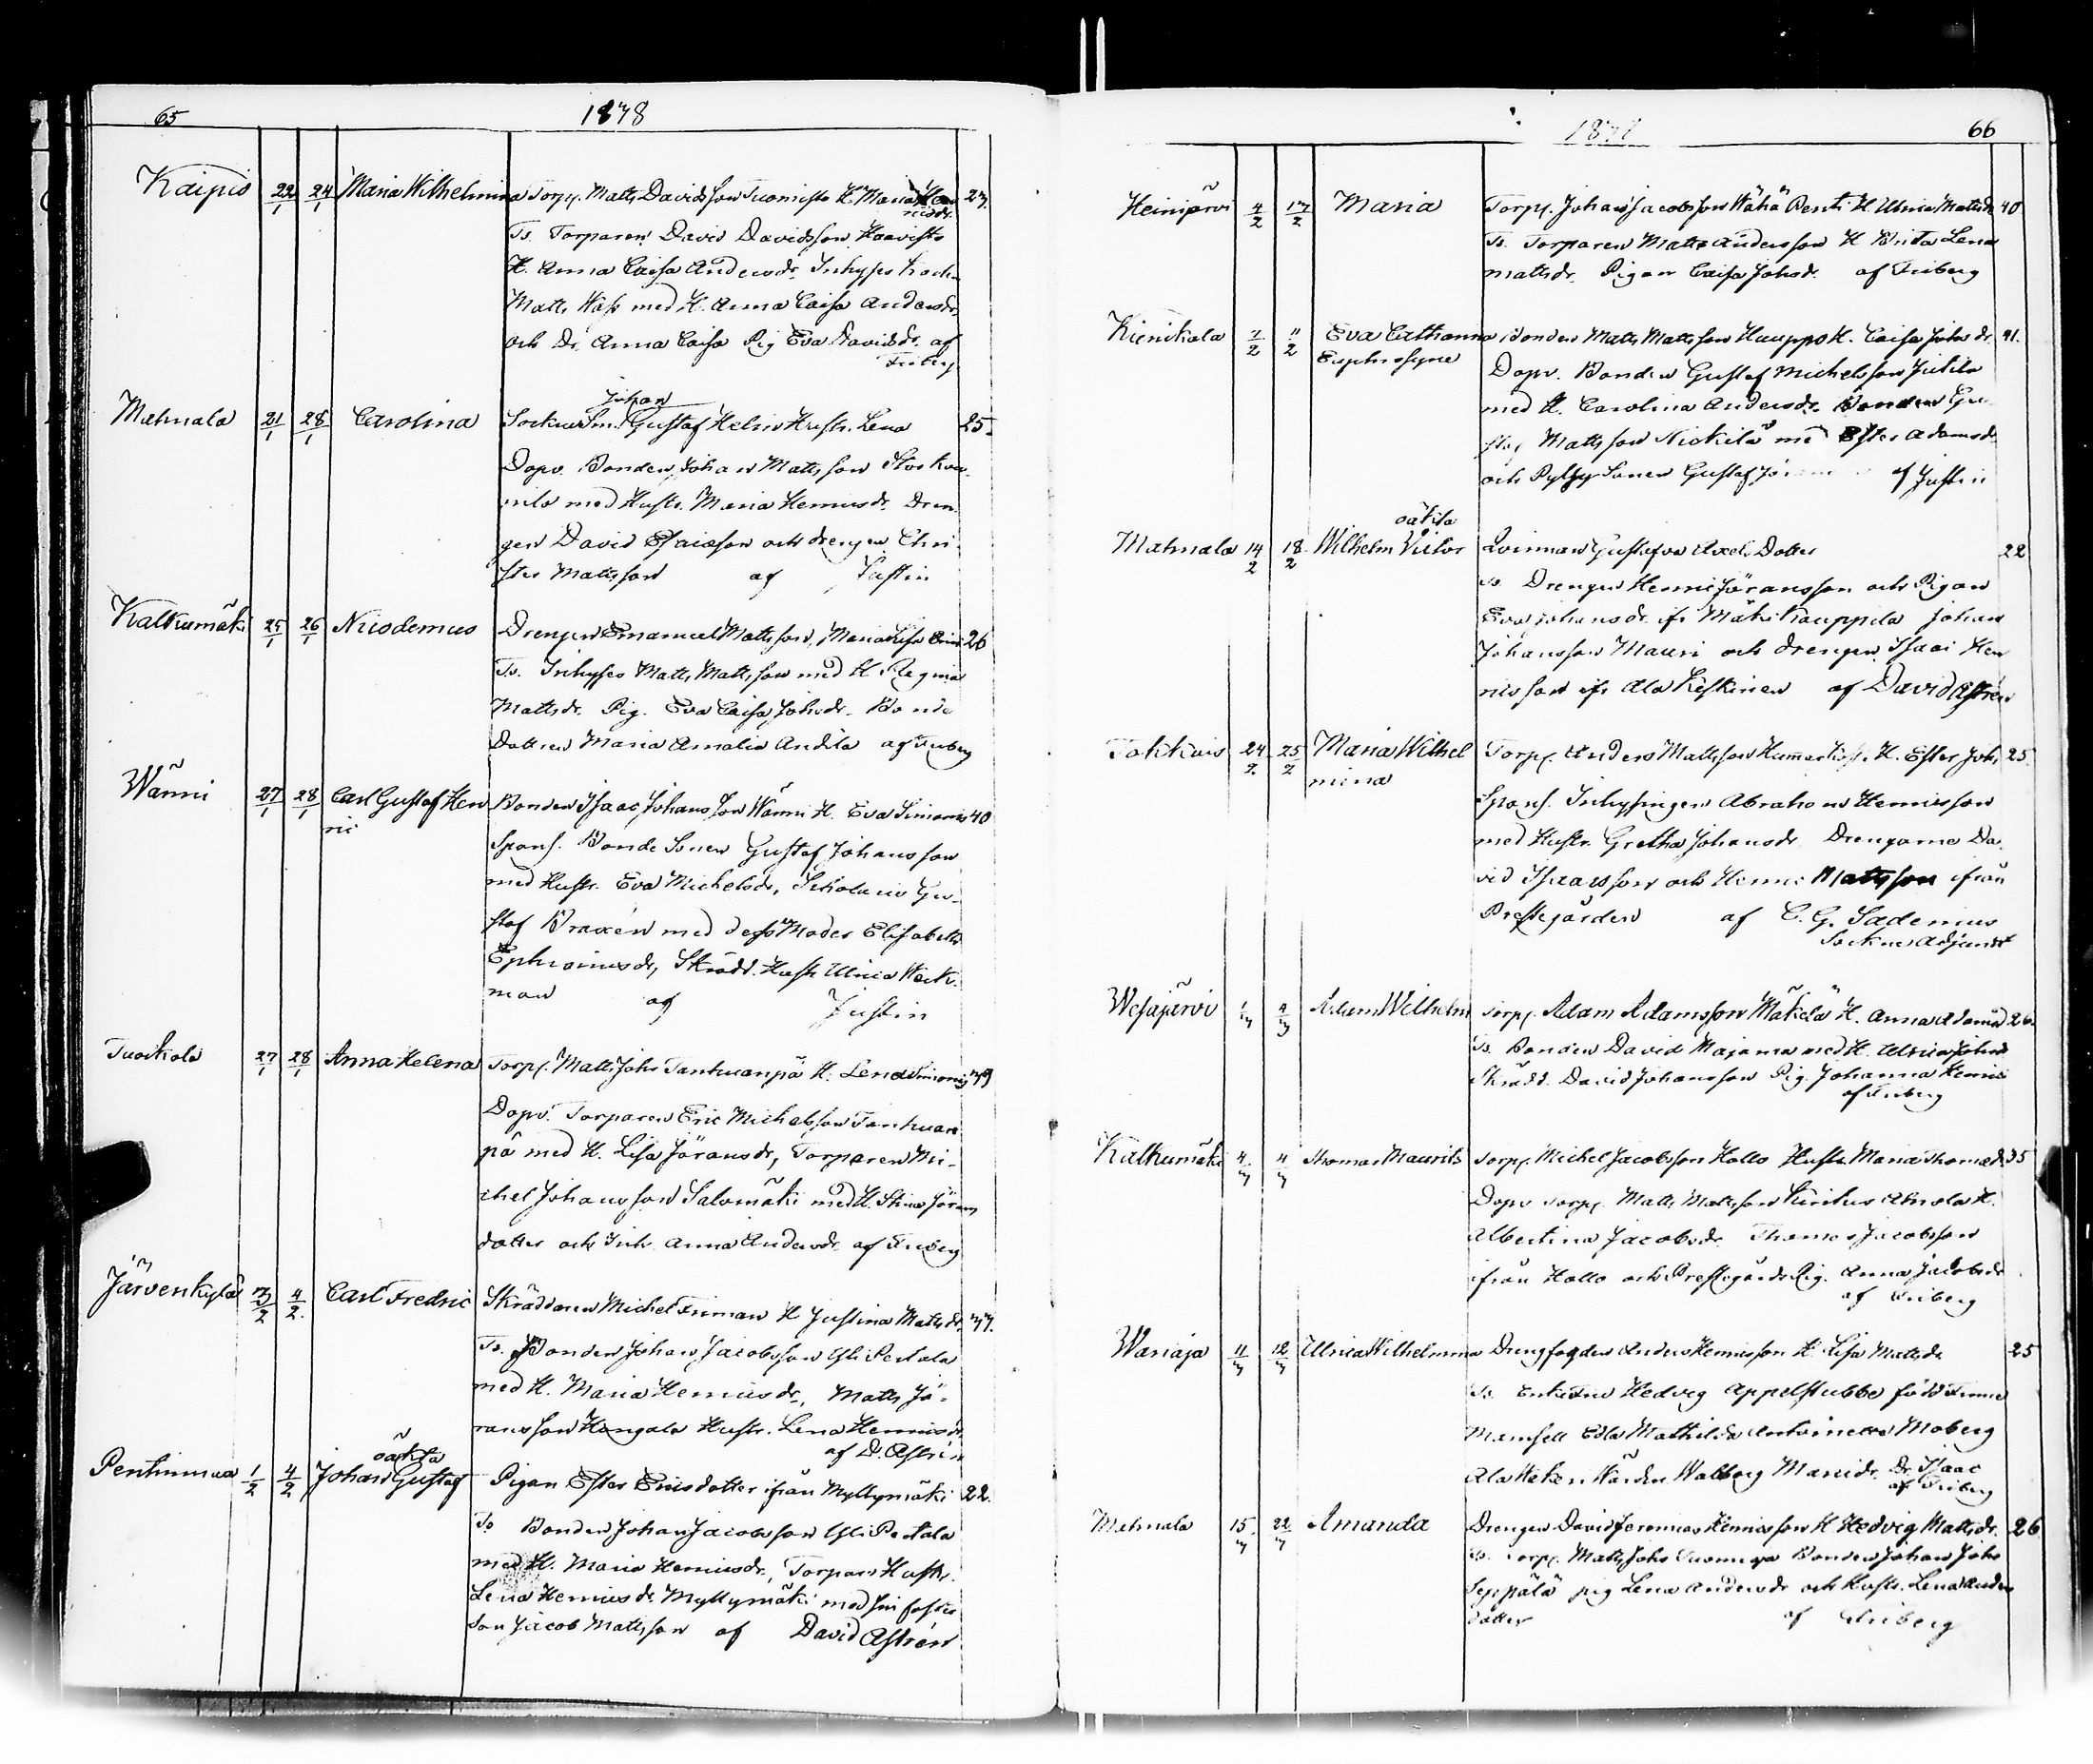 65
1878
Kaipio 22/1 24/1 Maria Wilhelmina Torp. Matts Davidsson Tuomisto H. Maria Hen 27.
ricsdr.
Ts. Torparen David Davidsson Haavisto
H. Anna Caisa Andersdr. Inhyses
Matts med H. Anna Caisa Andersdr.
och Dr. Anna Caisa Pig Eva Davidsdr. af
Friberg
Mahnala 21/1 28/1 Carolina Johan Gustaf Helin Hustr. Lena 25.
Dopv. Bonden Johan Mattsson
med Hustr. Maria Henricsdr. Dren
gen David Isaacsson och drengen Chri
ster Mattsson af Justin
Kalkumäki 25/1 26/1 Nicodemus Drengen Emanuel Mattsson, Maria Lisa 26
Ts. Inhyses Matts Mattsson med H Regina
Mattsdr. Pig. Eva Caisa Johsdr. Bonde
Dottren Maria Amalia Andila af Friberg
Wänni 27/1 28/1 Carl Gustaf Hen Bonden Isaac Johansson Wänni H. Eva Simonsd 40
ric
Spons. Bonde Sonen Gustaf Johansson
med Hustr. Eva Michelsdr, Gu-
staf Braxén med dess Moder Elisabeth
Ephraimsdr, Skrädd. Hustr Ulrica Weck-
man af Justin
Tuokola 27/1 28/1 Anna Helena Torp. Matts Johs Tanhuanpä H. Lena Simonsd 39
Dopv. Torparen Eric Michelsson Tanhuan
pä med H. Lisa Jöransdr, Torparen Mi-
chel Johansson Salomäki med H. Stina Jörans
dotter och Inh. Anna Andersdr. af Friberg
Järvenkylä 3/2 4/2 Carl Fredric Skräddaren Michel Friman H Justina Mattsdr. 37.
Ts. Bonden Johan Jacobsson Yli Pertala
med H. Maria Henricsdr, Matts Jö-
ransson Hangala Hustr. Lena Henricsdr
af D. Astrén
Pentinmaa 1/2 4/2 oäkta Johan Gustaf Pigan Ester Ericsdotter ifrån Myllymäki 22.
Ts Bonden Johan Jacobsson Yli Pertala
med H. Maria Henricsdr, Torpars Hustr.
Lena Henricsdr Myllymäki med sin foster
son Jacob Mattsson af David Astrén
66
Heinijärvi 4/2 17/2 Maria Torp. Johan Jacobsson Wähä Penti H. Ulrica Mattsdr 40
Ts. Torparen Matts Andersson H Brita Lena
Mattsdr. Pigan Caisa Johsdr. af Friberg
Kienikala 7/2 11/2 Eva Catharina Bonden Matts Mattsson Kauppo H. Caisa Johsdr. 41.
Euphrosyne
Dopv. Bonden Gustaf Michelsson Jutila
med H. Carolina Andersdr. Bonden Gu
staf Mattsson Nickilä med Ester Adamsdr
och Gustaf af Justin
Mahnala 14/2 18/2 oäkta Wilhelm Victor Qvinnan Gustafva Axels Dotter 22
Ts. Drengen Henric Jöransson och Pigan
Eva Johansdr. ifr Mäki Kauppila Johan
Johansson Mauri och drengen Isaac Hen
ricsson ifr Ala Keskinen af David Astrén
24/2 25/2 Maria Wilhel Torp. Anders Mattsson H. Ester Johs 25.
mina
Spons. Inhysingen Abraham Henricsson
med Hustr. Gretha Johansdr. Drengarne Da-
vid Isaacsson och Henric Mattsson ifrån
Prestgården af C. G. Sadenius
Sockne Adjunct
Wesajärvi 1/3 4/3 Adam Wilhelm Torp. Adam Adamsson Mäkelä H. Anna Adamsd 26.
Ts. Bonden David Majama med H. Ulrica Johsd
Skrädd. David Johansson Pig. Johanna Henrics
af Friberg
Kalkumäki 4/3 4/3 Thomas Maurits Torp. Michel Jacobsson Hollo Hustr Maria Thomasd 35
Dopv Torp. Matts Mattsson H.
Albertina Jacobsdr. Thomas Jacobsson
ifrån Hollo och Prestegårds Pig. Anna Jacobsdr
af Friberg
Wariaja 11/3 12/3 Ulrica Wilhelmina Drengfogden Anders Henricsson H. Lisa Mattsdr 25
Ts. Enkefru Hedvig Appelstubbe född
Mamsell Edla Mathilda Antoinetta Moberg
Walborg Dr. Isaac
af Friberg
Mahnala 15/3 22/3 Amanda Drengen David Jeremias Henricsson H Hedvig Mattsdr. 26
Ts. Torp. Matts Johs Bonden Johan Johs
Seppälä pig Lena Andersdr och Hustr. Lena Anders
dotter af Friberg